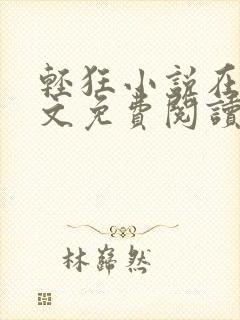 輕狂小說在
文免費閱讀
林巋然